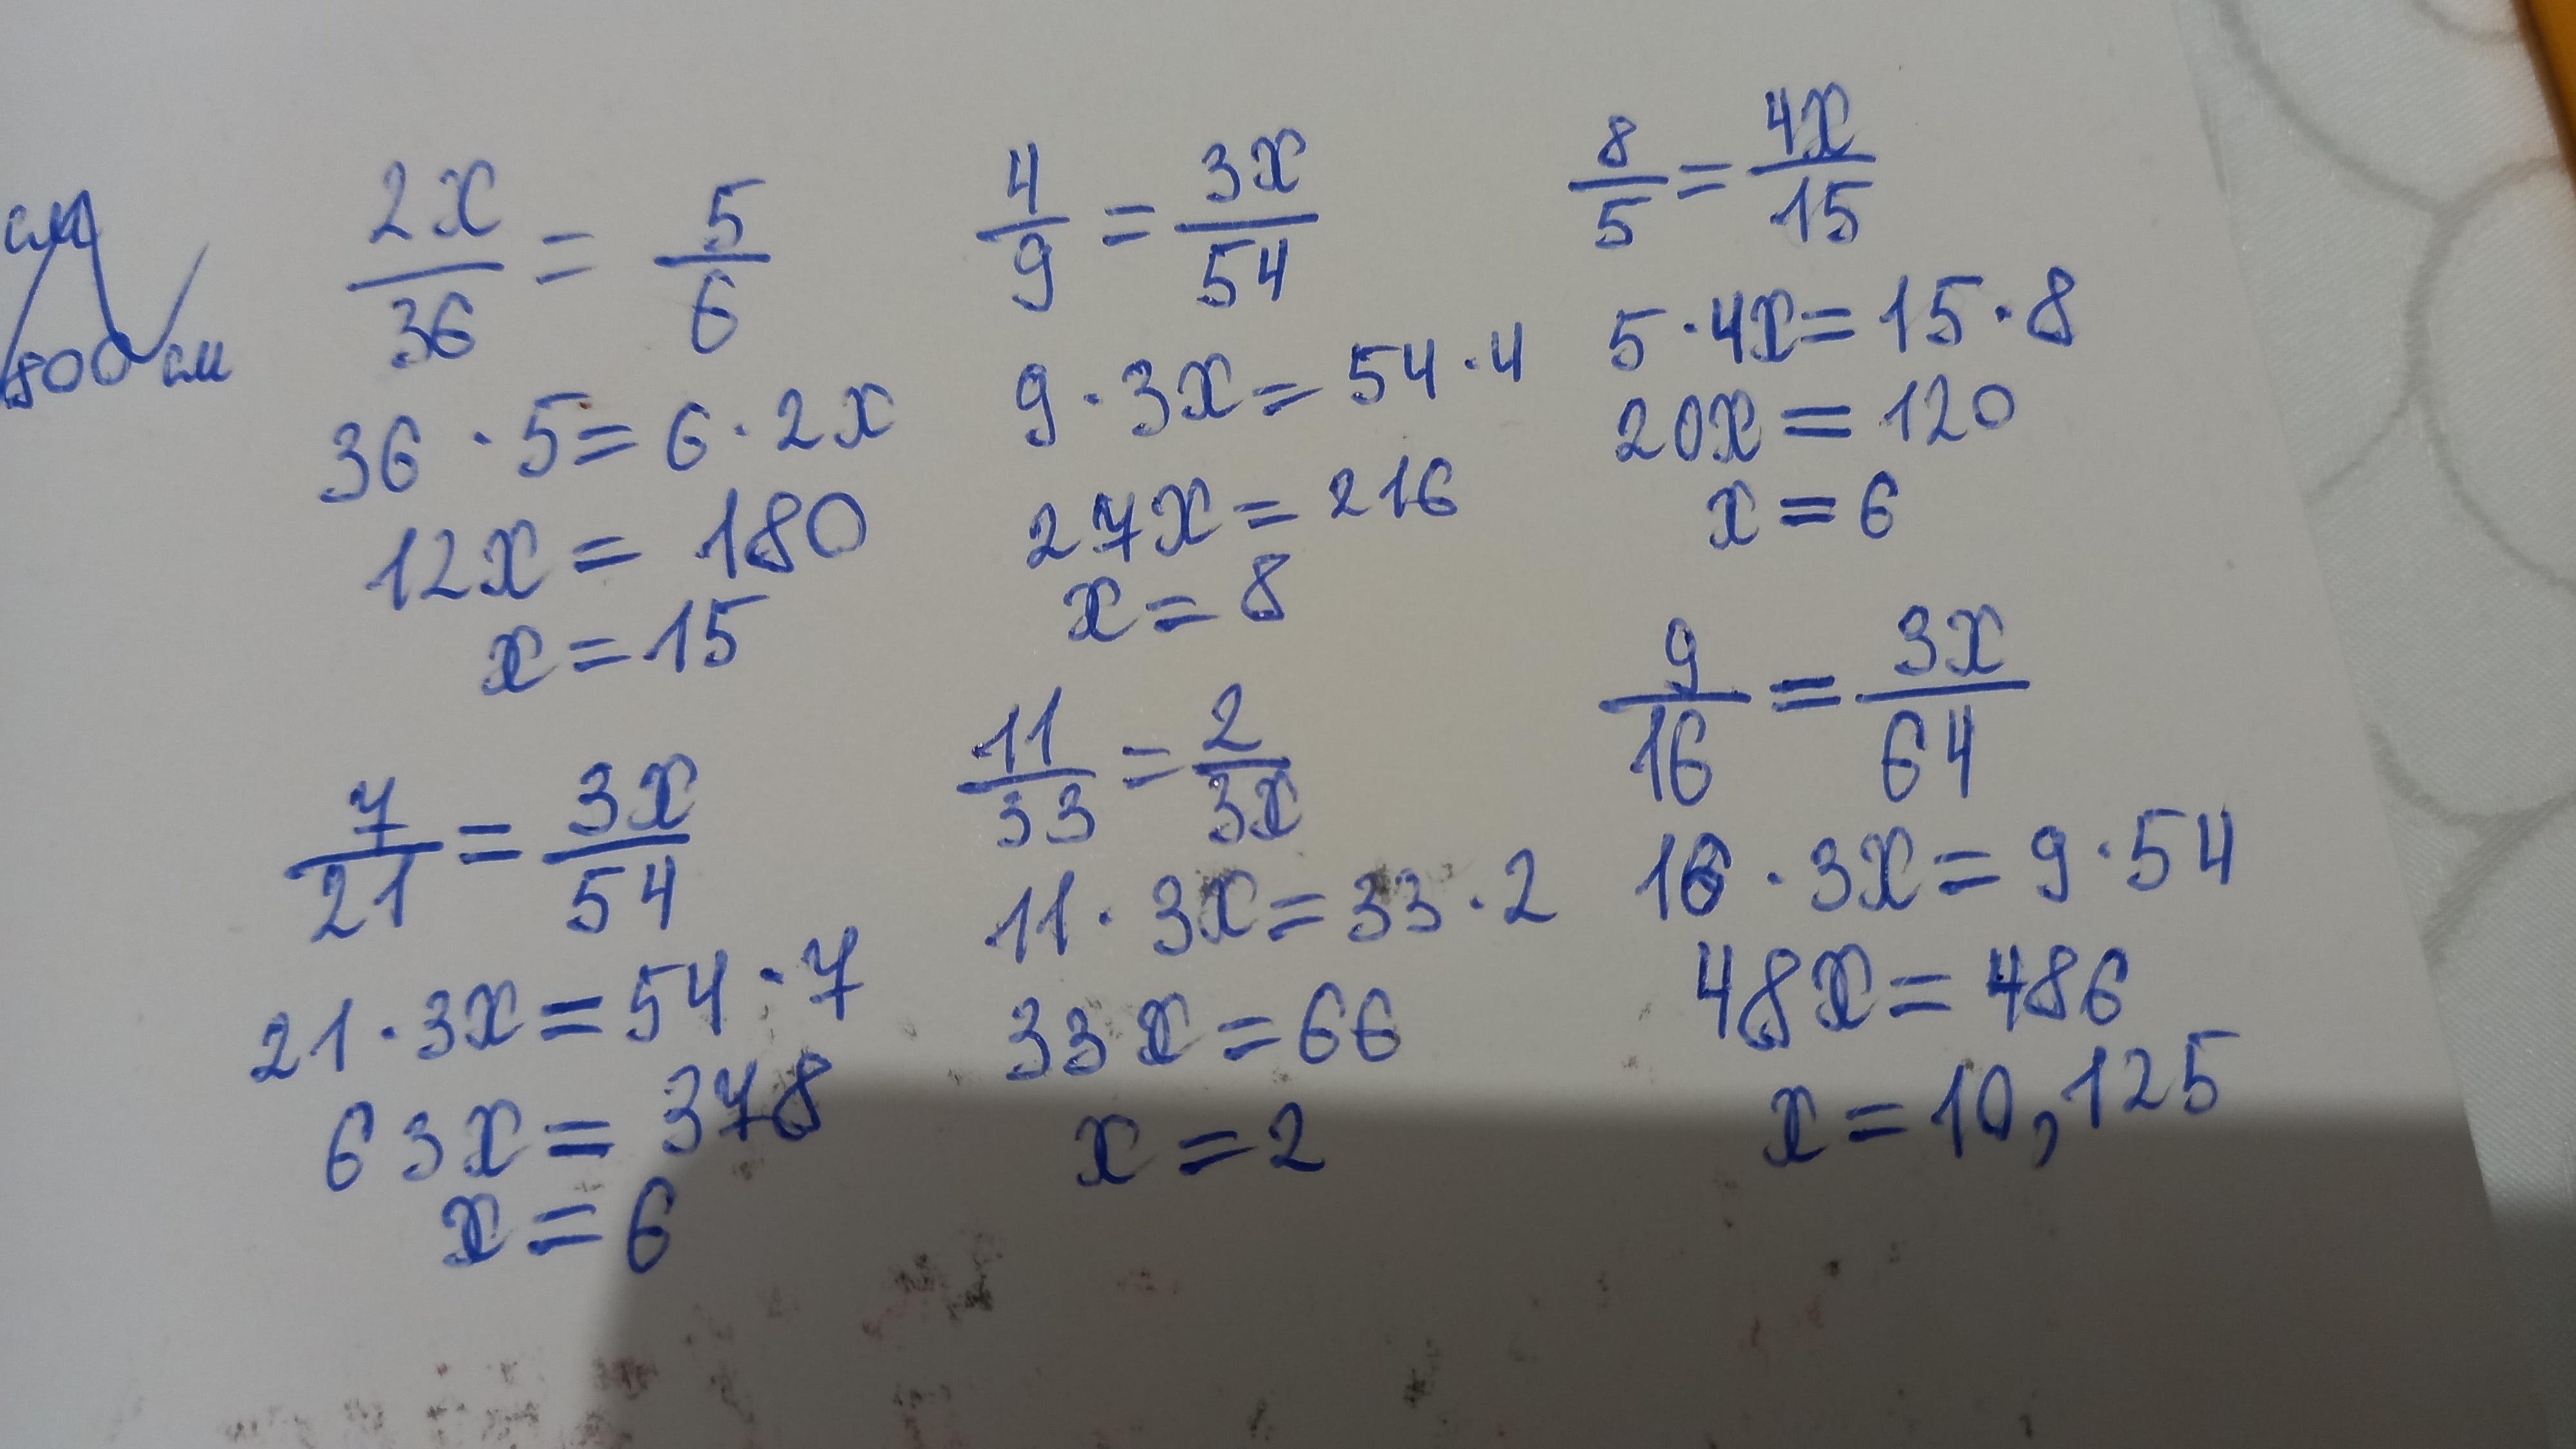 см
800 см
2x/36 = 5/6
36 · 5 = 6 · 2x
12x = 180
x = 15
4/9 = 3x/54
9 · 3x = 54 · 4
27x = 216
x = 8
8/5 = 4x/15
5 · 4x = 15 · 8
20x = 120
x = 6
7/21 = 3x/54
21 · 3x = 54 · 7
63x = 378
x = 6
11/33 = 2/3x
11 · 3x = 33 · 2
33x = 66
x = 2
9/16 = 3x/64
16 · 3x = 9 · 54
48x = 486
x = 10,125